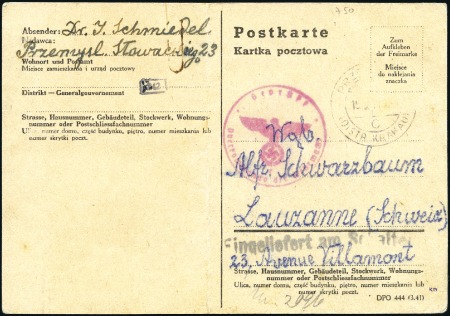 Absender: Dr. I. Schmiedel
Nadawca:
Przemysl. Słowackiego 23
Wohnort und Postamt
Miejsce zamieszkania i urząd pocztowy
Distrikt — Generalgouvernement
Strasse, Hausnummer, Gebäudeteil, Stockwerk, Wohnungs-
nummer oder Postschliessfachnummer
Ulica, numer domu, część budynku, piętro, numer mieszkania lub
numer skrytki poczt.
750
Postkarte
Kartka pocztowa
Zum
Aufkleben
der Freimarke
Miejsce
do naklejania
znaczka
C
Wgb.
Alfr. Schwarzbaum
Lauzanne (Schweiz)
Eingeliefert am
23, Avenue Villamont
Strasse, Hausnummer, Gebäudeteil, Stockwerk, Wohnungs-
nummer oder Postschliessfachnummer
Ulica, numer domu, część budynku, piętro, numer mieszkania lub
numer skrytki poczt.
DPO 444 (3.41)